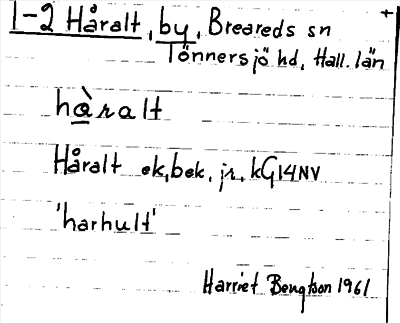 1-2 Håralt, by, Breareds sn +
Tönnersjö hd, Hall. län
hàralt
Håralt ek, bek, jr, kG14NV
'harhult'
Harriet Bengtson 1961